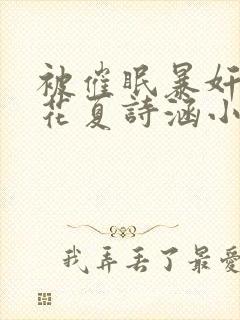 被催眠暴奸
花夏詩涵小
我弄丢了最愛